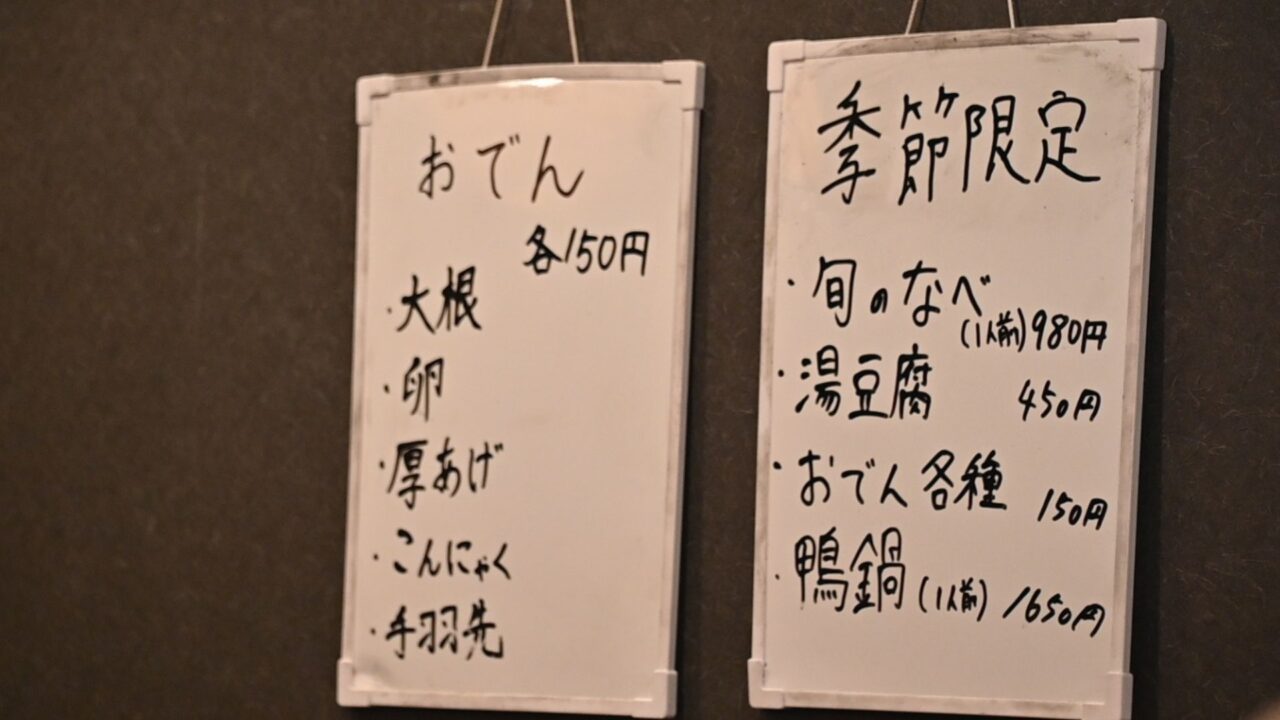 おでん
各150円
・大根
・卵
・厚あげ
・こんにゃく
・手羽先
季節限定
・旬のなべ
(1人前)980円
・湯豆腐 450円
・おでん各種 150円
・鴨鍋(1人前) 1650円